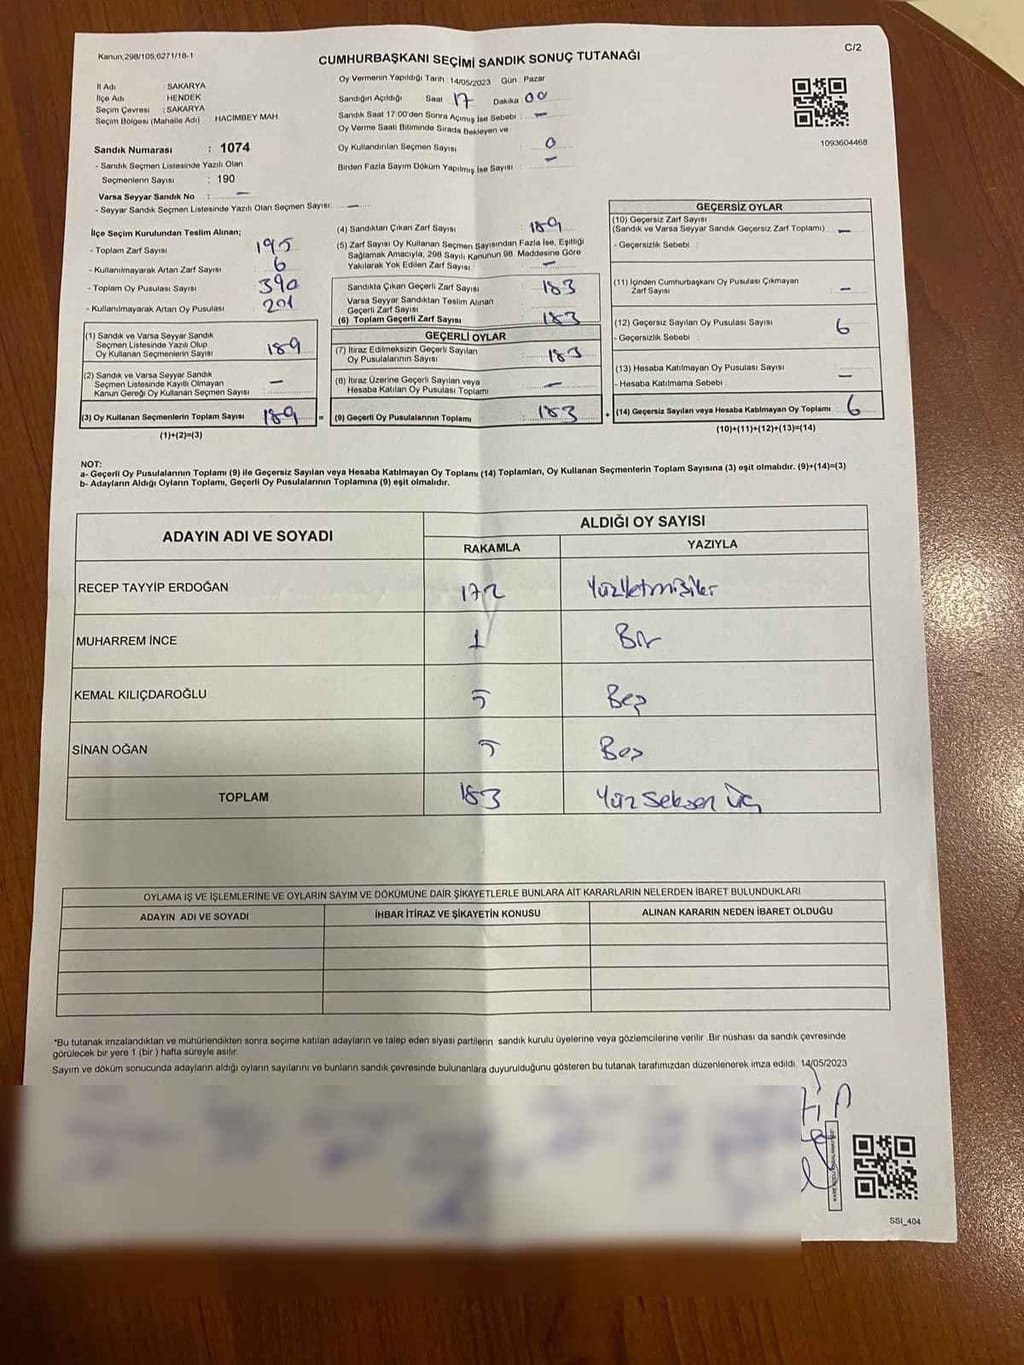 Kanun;298/105,6271/18-1
CUMHURBAŞKANI SEÇİMİ SANDIK SONUÇ TUTANAĞI
C/2
İl Adı : SAKARYA
İlçe Adı : HENDEK
Seçim Çevresi : SAKARYA
Seçim Bölgesi (Mahalle Adı) : HACIMBEY MAH.
Sandık Numarası : 1074
- Sandık Seçmen Listesinde Yazılı Olan
Seçmenlerin Sayısı : 190
Varsa Seyyar Sandık No : —
- Seyyar Sandık Seçmen Listesinde Yazılı Olan Seçmen Sayısı: —
Oy Vermenin Yapıldığı Tarih : 14/05/2023 Gün : Pazar
Sandığın Açıldığı Saat 17 Dakika 00
Sandık Saat 17:00'den Sonra Açımış İse Sebebi : —
Oy Verme Saati Bitiminde Sırada Bekleyen ve
Oy Kullandırılan Seçmen Sayısı : 0
Birden Fazla Sayım Döküm Yapılmış İse Sayısı : —
1093604468
İlçe Seçim Kurulundan Teslim Alınan;
- Toplam Zarf Sayısı : 195
- Kullanılmayarak Artan Zarf Sayısı : 6
- Toplam Oy Pusulası Sayısı : 390
- Kullanılmayarak Artan Oy Pusulası : 201
(1) Sandık ve Varsa Seyyar Sandık
Seçmen Listesinde Yazılı Olup
Oy Kullanan Seçmenlerin Sayısı : 189
(2) Sandık ve Varsa Seyyar Sandık
Seçmen Listesinde Kayıtlı Olmayan
Kanun Gereği Oy Kullanan Seçmen Sayısı : —
(3) Oy Kullanan Seçmenlerin Toplam Sayısı : 189 =
(1)+(2)=(3)
(4) Sandıktan Çıkan Zarf Sayısı : 189
(5) Zarf Sayısı Oy Kullanan Seçmen Sayısından Fazla İse, Eşitliği
Sağlamak Amacıyla; 298 Sayılı Kanunun 98. Maddesine Göre
Yakılarak Yok Edilen Zarf Sayısı : —
Sandıkta Çıkan Geçerli Zarf Sayısı : 183
Varsa Seyyar Sandıktan Teslim Alınan
Geçerli Zarf Sayısı
(6) Toplam Geçerli Zarf Sayısı : 183
GEÇERLİ OYLAR
(7) İtiraz Edilmeksizin Geçerli Sayılan
Oy Pusulalarının Sayısı : 183
(8) İtiraz Üzerine Geçerli Sayılan veya
Hesaba Katılan Oy Pusulası Toplamı : —
(9) Geçerli Oy Pusulalarının Toplamı : 183 +
GEÇERSİZ OYLAR
(10) Geçersiz Zarf Sayısı
(Sandık ve Varsa Seyyar Sandık Geçersiz Zarf Toplamı) : —
- Geçersizlik Sebebi :
(11) İçinden Cumhurbaşkanı Oy Pusulası Çıkmayan
Zarf Sayısı : —
(12) Geçersiz Sayılan Oy Pusulası Sayısı : 6
- Geçersizlik Sebebi :
(13) Hesaba Katılmayan Oy Pusulası Sayısı : —
- Hesaba Katılmama Sebebi :
(14) Geçersiz Sayılan veya Hesaba Katılmayan Oy Toplamı : 6
(10)+(11)+(12)+(13)=(14)
NOT:
a- Geçerli Oy Pusulalarının Toplamı (9) ile Geçersiz Sayılan veya Hesaba Katılmayan Oy Toplamı (14) Toplamları, Oy Kullanan Seçmenlerin Toplam Sayısına (3) eşit olmalıdır. (9)+(14)=(3)
b- Adayların Aldığı Oyların Toplamı, Geçerli Oy Pusulalarının Toplamına (9) eşit olmalıdır.
ADAYIN ADI VE SOYADI
ALDIĞI OY SAYISI
RAKAMLA
YAZIYLA
RECEP TAYYİP ERDOĞAN 172 Yüzyetmişiki
MUHARREM İNCE 1 Bir
KEMAL KILIÇDAROĞLU 5 Beş
SİNAN OĞAN 5 Beş
TOPLAM 183 Yüz Seksen Üç
OYLAMA İŞ VE İŞLEMLERİNE VE OYLARIN SAYIM VE DÖKÜMÜNE DAİR ŞİKAYETLERLE BUNLARA AİT KARARLARIN NELERDEN İBARET BULUNDUKLARI
ADAYIN ADI VE SOYADI
İHBAR İTİRAZ VE ŞİKAYETİN KONUSU
ALINAN KARARIN NEDEN İBARET OLDUĞU
*Bu tutanak imzalandıktan ve mühürlendikten sonra seçime katılan adayların ve talep eden siyasi partilerin sandık kurulu üyelerine veya gözlemcilerine verilir .Bir nüshası da sandık çevresinde
görülecek bir yere 1 (bir ) hafta süreyle asılır.
Sayım ve döküm sonucunda adayların aldığı oyların sayılarını ve bunların sandık çevresinde bulunanlara duyurulduğunu gösteren bu tutanak tarafımızdan düzenlenerek imza edildi. 14/05/2023
SSI_404